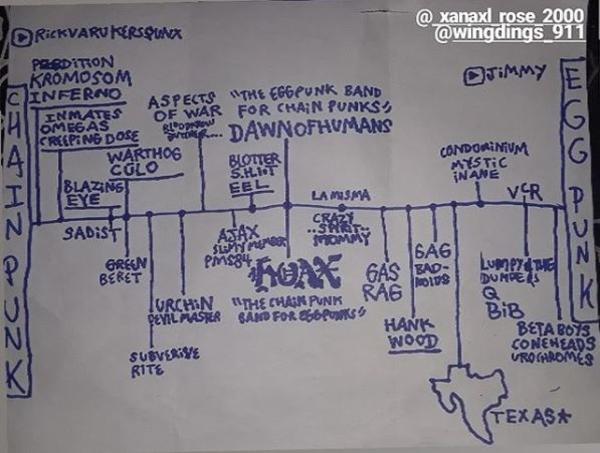 @_xanaxl_rose_2000
@wingdings_911
RICKVARUKERSPUNX
JIMMY
CHAIN PUNK
EGG PUNK
PERDITION
KROMOSOM
INFERNO
INMATES
OMEGAS
CREEPING DOSE
WARTHOG
CÜLO
BLAZING
EYE
SADIST
GREEN
BERET
SUBVERSIVE
RITE
URCHIN
DEVIL MASTER
ASPECTS
OF WAR
AJAX
PMS84
"THE EGGPUNK BAND
FOR CHAIN PUNKS"
DAWNOFHUMANS
BLOTTER
S.H.I.T
EEL
HOAX
"THE CHAIN PUNK
BAND FOR EGGPUNKS"
LA MISMA
CRAZY
SPIRIT
MOMMY
GAS
RAG
HANK
WOOD
GAG
BAD-
NOIDS
CONDOMINIUM
MYSTIC
INANE
TEXAS*
VCR
LUMPY & THE
DUMPERS
Q
BIB
BETA BOYS
CONEHEADS
UROCHROMES